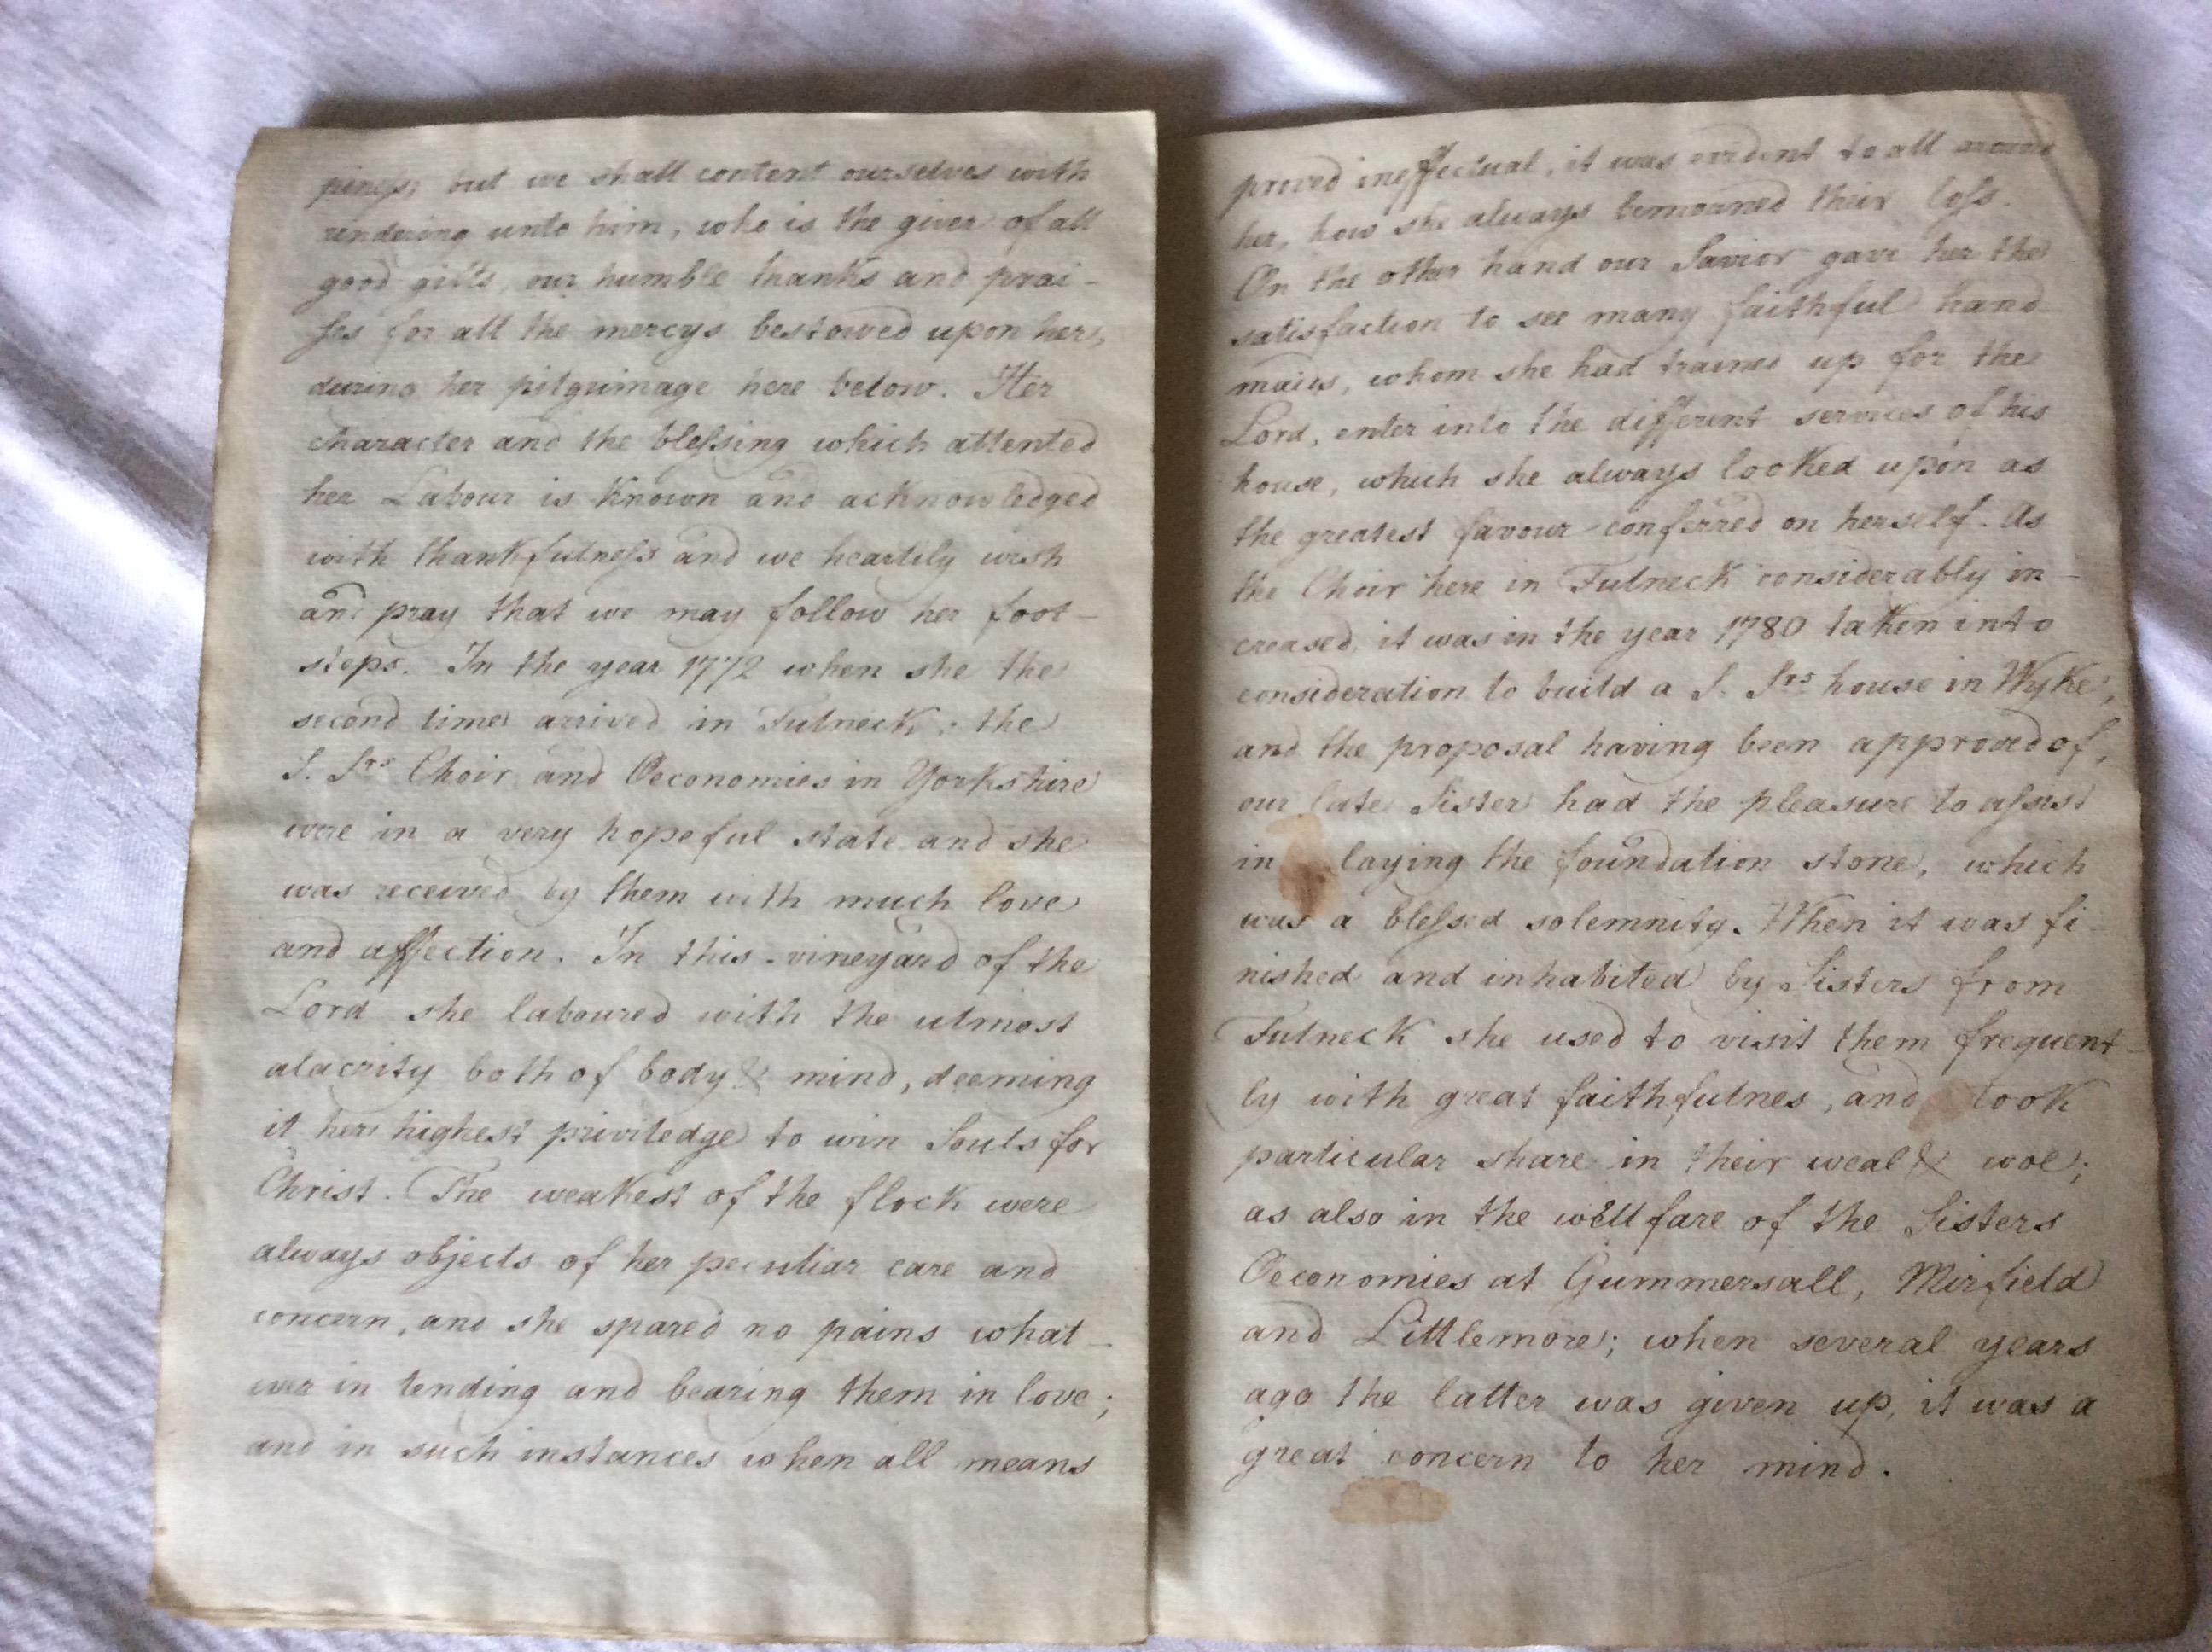 piness; but we shall content ourselves with
rendering unto him, who is the giver of all
good gifts, our humble thanks and prai-
ses for all the mercys bestowed upon her,
during her pilgrimage here below. Her
character and the blessing which attented
her Labour is known and acknowledged
with thankfulness and we heartily wish
and pray that we may follow her foot-
steps. In the year 1772 when she the
second time arrived in Fulneck, the
S. Srs Choir and Oeconomies in Yorkshire
were in a very hopeful state and she
was received by them with much love
and affection. In this vineyard of the
Lord she laboured with the utmost
alacrity both of body & mind, deeming
it her highest priviledge to win Souls for
Christ. The weakest of the flock were
always objects of her peculiar care and
concern, and she spared no pains what-
ever in tending and bearing them in love;
and in such instances when all means
proved ineffectual, it was evident to all around
her, how she always bemoaned their loss.
On the other hand our Savior gave her the
satisfaction to see many faithful hand
maids, whom she had trained up for the
Lord, enter into the different services of his
house, which she always looked upon as
the greatest favour conferred on herself. As
the Choir here in Fulneck considerably in-
creased, it was in the year 1780 taken into
consideration to build a S. Srs house in Wyke,
and the proposal having been approved of,
our late Sister had the pleasure to assist
in laying the foundation stone, which
was a blessed solemnity. When it was fi-
nished and inhabited by Sisters from
Fulneck she used to visit them frequent-
ly with great faithfulnes, and took
particular share in their weal & woe;
as also in the wellfare of the Sisters
Oeconomies at Gummersall, Mirfield
and Littlemore; when several years
ago the latter was given up, it was a
great concern to her mind.